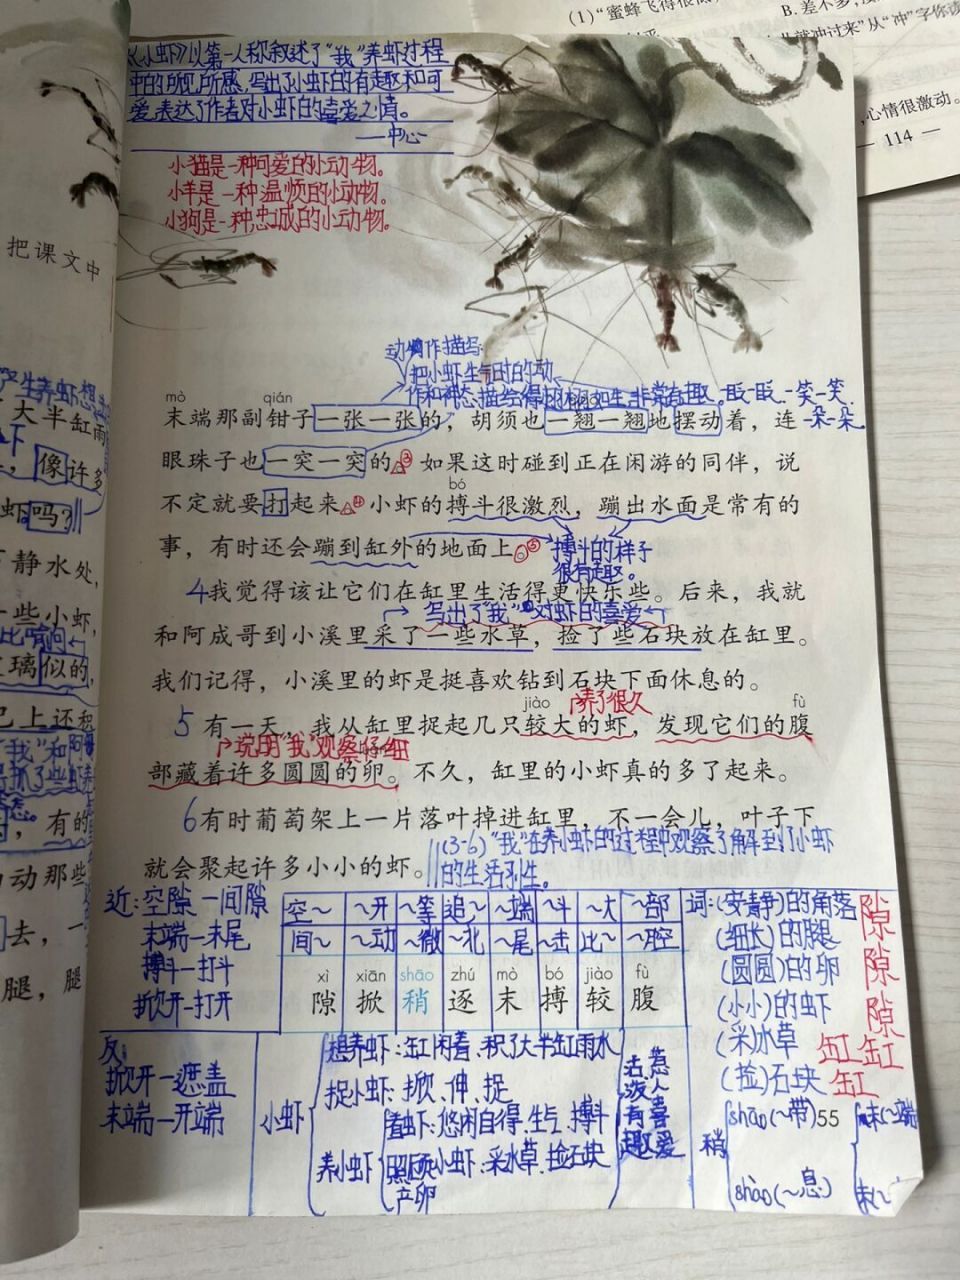 (1)“蜜蜂飞得很低
B.差不多,
就冲过来”从“冲”字你读
,心情很激动。
— 114 —
《小虾》以第一人称叙述了“我”养虾过程
中的所见、所感,写出了小虾的有趣和可
爱,表达了作者对小虾的喜爱之情。
——中心
小猫是一种可爱的小动物。
小羊是一种温顺的小动物。
小狗是一种忠诚的小动物。
把课文中
产生养虾想
大半缸雨
,像许多
虾吗?
静水处,
一些小虾,
璃似的,
己上还
,有的
动那些
去,一
腿,腿
动作描写:
把小虾生气时的动
作和神态描绘得栩栩如生,非常有趣。一眨一眨 一笑一笑
一朵一朵
mò qián
末端那副钳子一张一张的,胡须也一翘一翘地摆动着,连
眼珠子也一突一突的。③如果这时碰到正在闲游的同伴,说
bó
不定就要打起来。④小虾的搏斗很激烈,蹦出水面是常有的
事,有时还会蹦到缸外的地面上。⑤
搏斗的样子
很有趣。
4我觉得该让它们在缸里生活得更快乐些。后来,我就
写出了“我”对虾的喜爱
和阿成哥到小溪里采了一些水草,捡了些石块放在缸里。
我们记得,小溪里的虾是挺喜欢钻到石块下面休息的。
jiào 养了很久 fù
5 有一天,我从缸里捉起几只较大的虾,发现它们的腹
说明“我”观察仔细
部藏着许多圆圆的卵。不久,缸里的小虾真的多了起来。
6有时葡萄架上一片落叶掉进缸里,不一会儿,叶子下
就会聚起许多小小的虾。
(3-6)“我”在养小虾的过程中观察了解到了小虾
的生活习性。
近:空隙—间隙
末端—末尾
搏斗—打斗
掀开—打开
空~ ~开 ~等 追~ ~端 ~斗 ~大 ~部
间~ ~动 ~微 ~北 ~尾 ~击 比~ ~腔
xì xiān shāo zhú mò bó jiào fù
隙 掀 稍 逐 末 搏 较 腹
词:(安静)的角落
(细长)的腿
(圆圆)的卵
(小小)的虾
(采)水草
(捡)石块
隙
隙
隙
缸缸
缸
反:
掀开—遮盖
末端—开端
小虾
想养虾:缸闲着、积了大半缸雨水
捉小虾:掀、伸、捉
养小虾
看虾:悠闲自得、生气、搏斗
照顾小虾:采水草、捡石块
产卵
活泼有趣
惹人喜爱
稍
shāo(~带)55
shào(~息)
末(~端